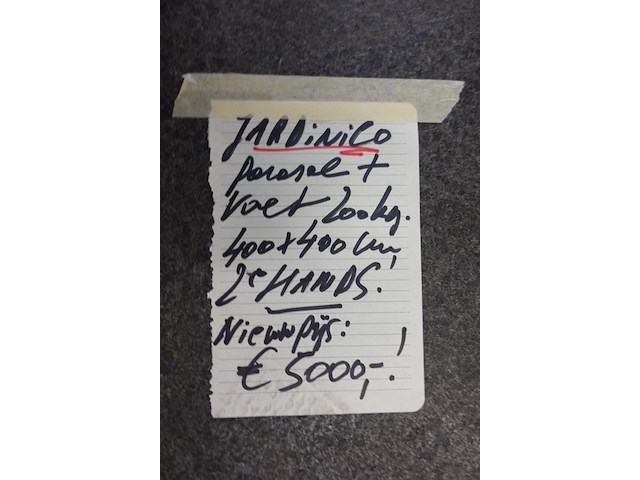 JARDiNiCO
parasol +
Voet 200kg.
400x400 cm,
2e HANDS!
Nieuwpijs:
€ 5000,-!